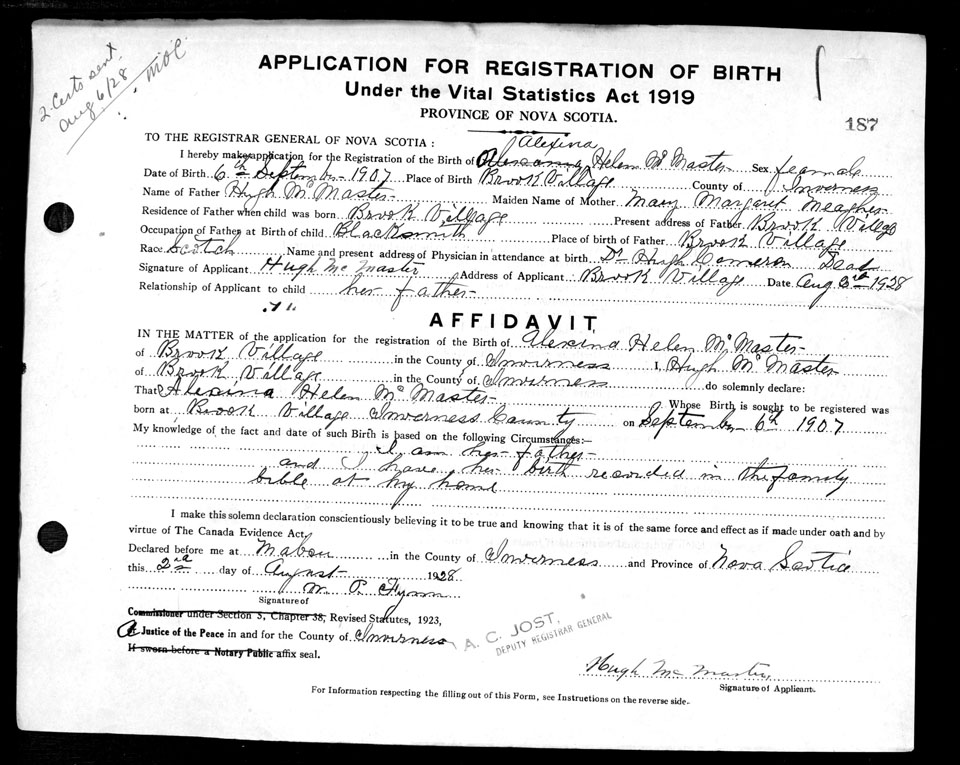 2 Certs sent
Aug 6/28 MOC
APPLICATION FOR REGISTRATION OF BIRTH
Under the Vital Statistics Act 1919
PROVINCE OF NOVA SCOTIA.
187
TO THE REGISTRAR GENERAL OF NOVA SCOTIA :
Alexina
I hereby make application for the Registration of the Birth of Helen Mc Master Sex feamale
Date of Birth 6th September 1907 Place of Birth Brook Village County of Inverness
Name of Father Hugh Mc Master Maiden Name of Mother Mary Margaret Meagher
Residence of Father when child was born Brook Village Present address of Father Brook Village
Occupation of Father at Birth of child Blacksmith Place of birth of Father Brook Village
Race Scotch Name and present address of Physician in attendance at birth Dr Hugh Cameron Dead
Signature of Applicant Hugh Mc Master Address of Applicant Brook Village Date Aug 1928
Relationship of Applicant to child her father
AFFIDAVIT
IN THE MATTER of the application for the registration of the Birth of Alexina Helen Mc Master
of Brook Village in the County of Inverness I, Hugh Mc Master
of Brook Village in the County of Inverness do solemnly declare:
That Alexina Helen Mc Master Whose Birth is sought to be registered was
born at Brook Village Inverness County on September 6th 1907
My knowledge of the fact and date of such Birth is based on the following Circumstances:—
I am her father
and I have her birth recorded in the family
bible at my home
I make this solemn declaration conscientiously believing it to be true and knowing that it is of the same force and effect as if made under oath and by
virtue of The Canada Evidence Act.
Declared before me at Mabou in the County of Inverness and Province of Nova Scotia
this 2nd day of August 1928
W. P. Flynn
Signature of
Commissioner under Section 5, Chapter 38, Revised Statutes, 1923,
A Justice of the Peace in and for the County of Inverness
If sworn before a Notary Public affix seal.
A. C. JOST,
DEPUTY REGISTRAR GENERAL
Hugh Mc Master
Signature of Applicant.
For Information respecting the filling out of this Form, see Instructions on the reverse side.